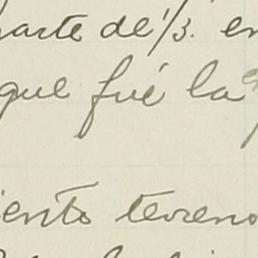 parte de 1/3. en
que fué la
iento terreno